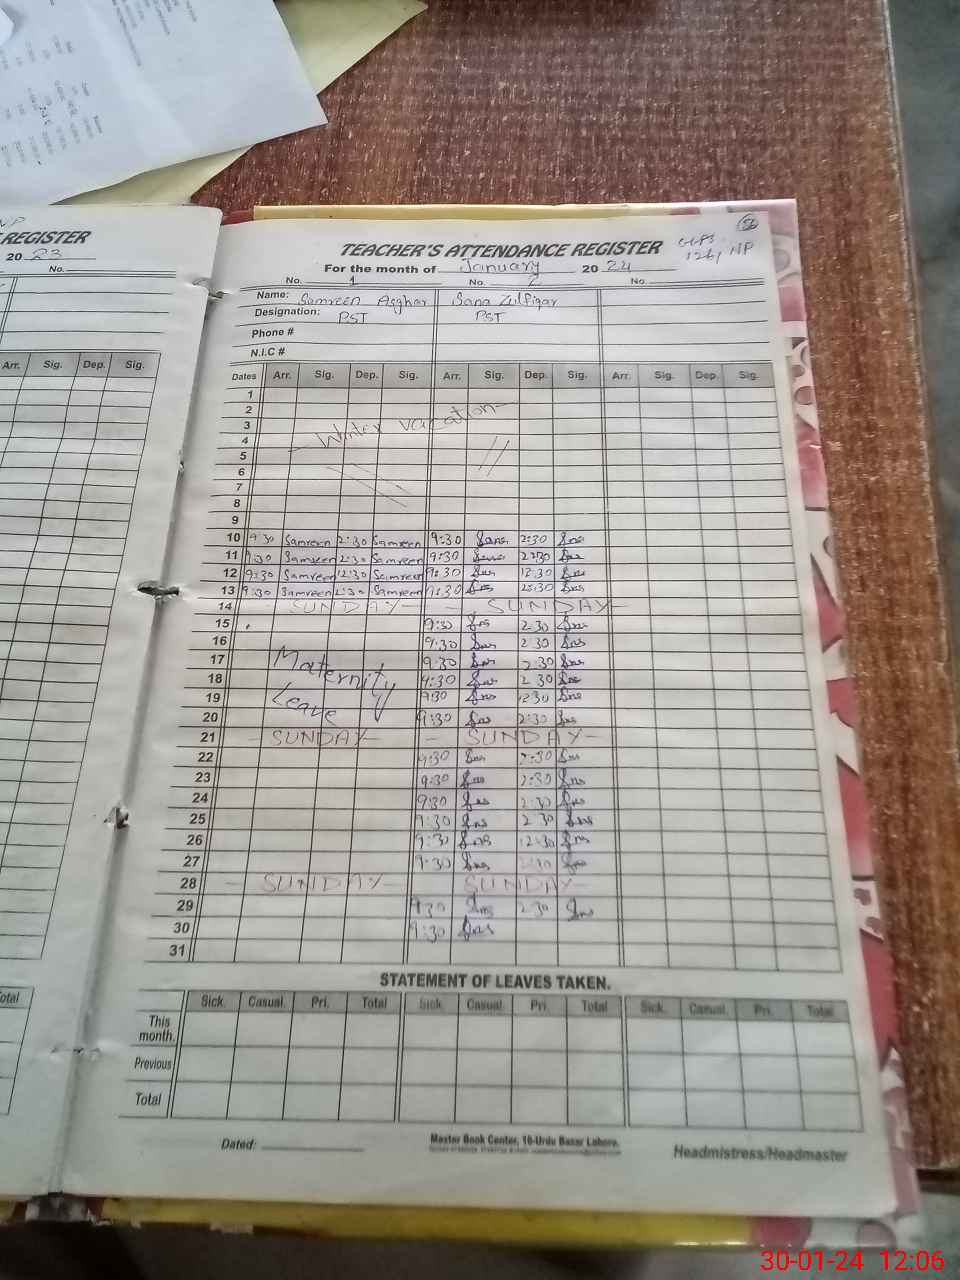 REGISTER
20 23
No.
Arr. Sig. Dep. Sig.
56
TEACHER'S ATTENDANCE REGISTER
126/ NP
For the month of January 20 24
No. 1 No. 2 No.
Name: Samreen Asghar Sana Zulfiqar
Designation: PST PST
Phone #
N.I.C #
Dates Arr. Sig. Dep. Sig. Arr. Sig. Dep. Sig. Arr. Sig. Dep. Sig.
1
2
3
Winter vacation
4
5
6
7
8
9
10 9:30 Samreen 2:30 Samreen 9:30 Sana 2:30
11 9:30 Samreen 2:30 Samreen 9:30 2:30
12 9:30 Samreen 12:30 Samreen 9:30 12:30
13 9:30 Samreen 2:30 Samreen 9:30 2:30
14 SUNDAY SUNDAY
15 9:30 2:30
16 9:30 2:30
17 9:30 2:30
Maternity
18 9:30 2:30
19 Leave 9:30 12:30
20 9:30 2:30
21 SUNDAY SUNDAY
22 9:30 2:30
23 9:30 2:30
24 9:30 2:30
25 9:30 2:30
26 9:30 12:30
27 9:30
28 SUNDAY SUNDAY
29 9:30 2:30
30 9:30
31
STATEMENT OF LEAVES TAKEN.
Sick. Casual. Pri. Total Sick. Casual. Pri. Total Sick. Casual. Pri. Total
This month.
Previous
Total
Dated:
Master Book Center, 16-Urdu Bazar Lahore.
Headmistress/Headmaster
30-01-24 12:06